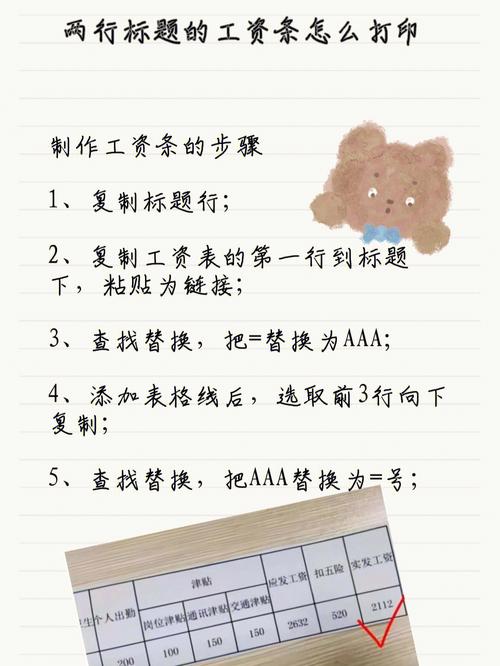 两行标题的工资条怎么打印
制作工资条的步骤
1、复制标题行;
2、复制工资表的第一行到标题
下，粘贴为链接;
3、查找替换，把=替换为AAA;
4、添加表格线后，选取前3行向下
复制;
5、查找替换，把AAA替换为=号;
津贴 应发工资 扣五险 实发工资
个人出勤 岗位津贴 通讯津贴 交通津贴
200 100 150 150 2632 520 2112